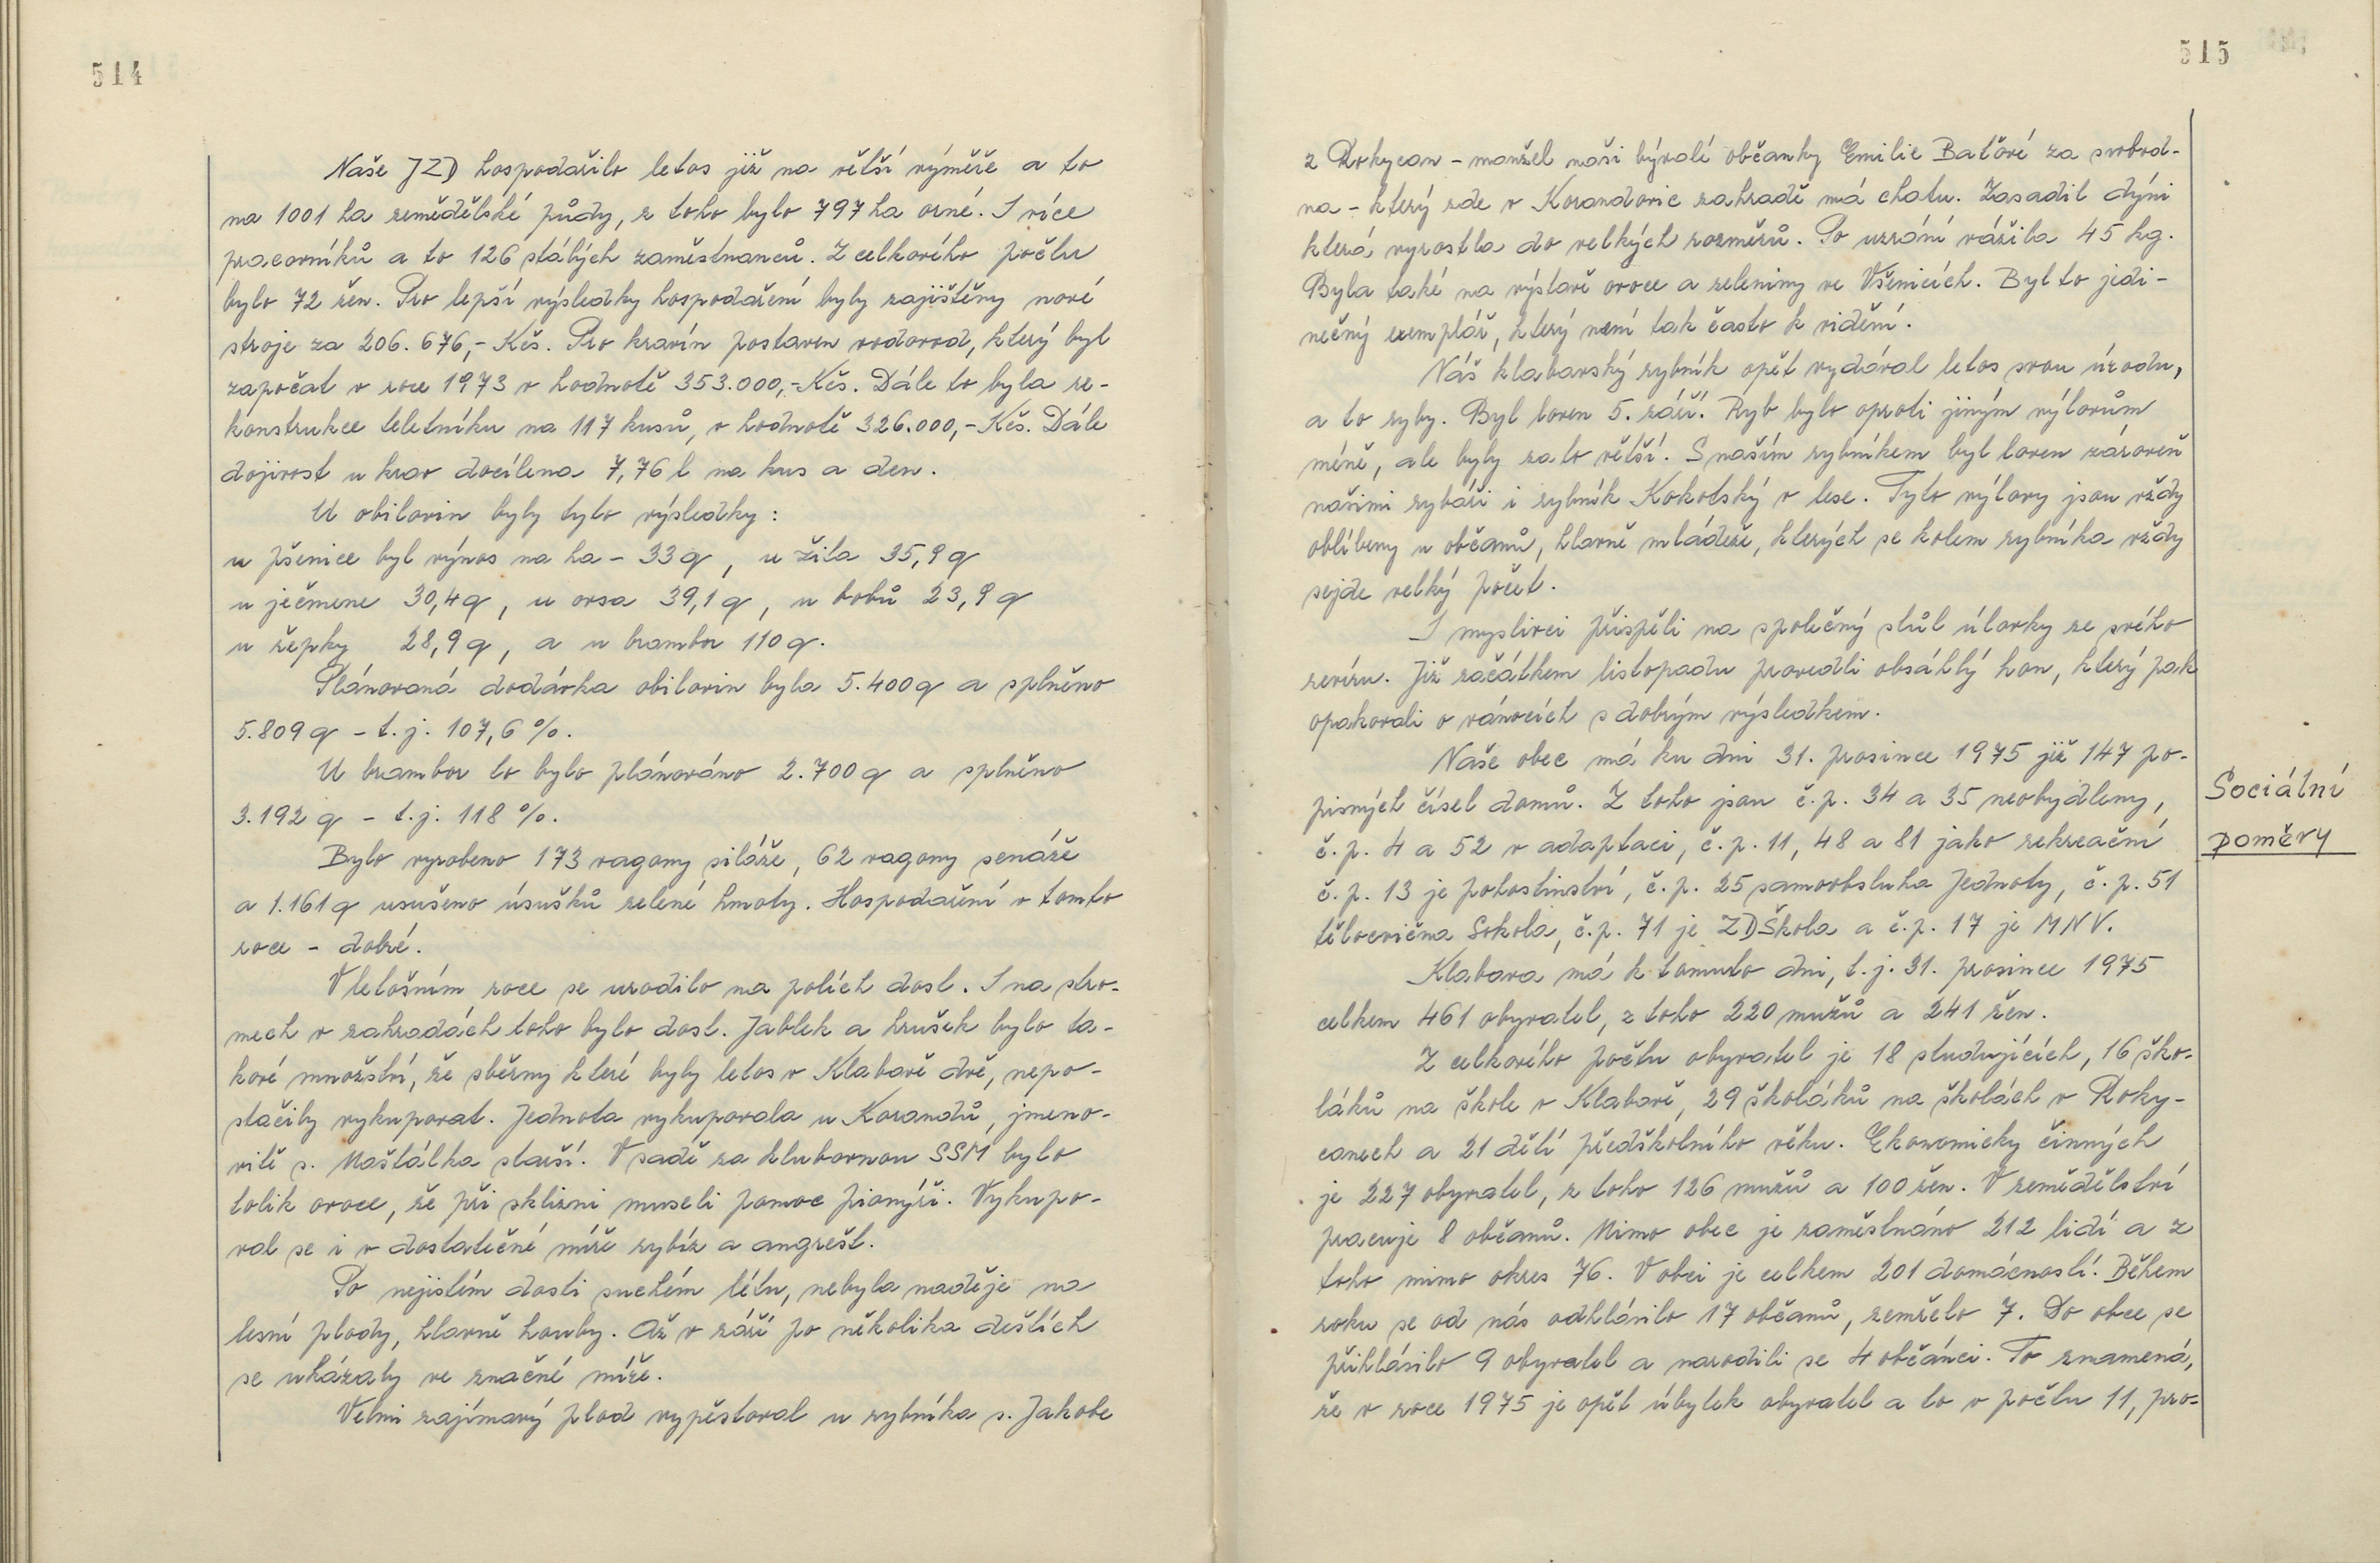 514
Naše JZD hospodařilo letos již na větší výměře a to
na 1001 ha zemědělské půdy, z toho bylo 797 ha orné. I více
pracovníků a to 126 stálých zaměstnanců. Z celkového počtu
bylo 72 žen. Pro lepší výsledky hospodaření byly zajištěny nové
stroje za 206.676,- Kčs. Pro kravín postaven vodovod, který byl
započat v roce 1973 v hodnotě 353.000,- Kčs. Dále to byla re-
konstrukce teletníku na 117 kusů, v hodnotě 326.000,- Kčs. Dále
dojivost u krav docílena 7,76 l na kus a den.
U obilovin byly tyto výsledky:
u pšenice byl výnos na ha - 33 q, u žita 35,9 q
u ječmene 30,4 q, u ovsa 39,1 q, u bobů 23,9 q
u řepky 28,9 q, a u brambor 110 q.
Plánovaná dodávka obilovin byla 5.400 q a splněno
5.809 q - t.j. 107,6 %.
U brambor to bylo plánováno 2.700 q a splněno
3.192 q - t.j. 118 %.
Bylo vyrobeno 173 vagony siláže, 62 vagony senáže
a 1.161 q usušeno úsušků zelené hmoty. Hospodaření v tomto
roce - dobré.
V letošním roce se urodilo na polích dost. I na stro-
mech v zahradách toho bylo dost. Jablek a hrušek bylo ta-
kové množství, že sběrny které byly letos v Klabavě dvě, nepo-
stačily vykupovat. Jednota vykupovala u Korandů, jmeno-
vitě s. Maštálka starší. V sadě za klubovnou SSM bylo
tolik ovoce, že při sklizni museli pomoc pionýři. Vykupo-
val se i v dostatečné míře rybíz a angrešt.
Po nejistém dosti suchém létu, nebyla naděje na
lesní plody, hlavně houby. Až v září po několika deštích
se ukázaly ve značné míře.
Velmi zajímavý plod vypěstoval u rybníka s. Jakobe
515
z Rokycan - manžel naši bývalé občanky Emilie Baťové za svobod-
na - který zde v Korandovic zahradě má chatu. Zasadil dýni
která vyrostla do velkých rozměrů. Po uzrání vážila 45 kg.
Byla také na výstavě ovoce a zeleniny ve Všenicích. Byl to jedi-
nečný exemplář, který není tak často k vidění.
Náš klabavský rybník opět vydával letos svou úrodu,
a to ryby. Byl loven 5. září. Ryb bylo oproti jiným výlovům
méně, ale byly zato větší. S naším rybníkem byl loven zároveň
našimi rybáři i rybník Kokotský v lese. Tyto výlovy jsou vždy
oblíbeny u občanů, hlavně mládeže, kterých se kolem rybníka vždy
sejde velký počet.
I myslivci přispěli na společný stůl úlovky ze svého
revíru. Již začátkem listopadu provedli obsáhlý hon, který pak
opakovali o vánocích s dobrým výsledkem.
Naše obec má ku dni 31. prosince 1975 již 147 po-
pisných čísel domů. Z toho jsou č.p. 34 a 35 neobydleny,
č.p. 4 a 52 v adaptaci, č.p. 11, 48 a 81 jako rekreační
č.p. 13 je pohostinství, č.p. 25 samoobsluha Jednoty, č.p. 51
tělocvična Sokola, č.p. 71 je ZDŠkola a č.p. 17 je MNV.
Klabava má k tomuto dni, t.j. 31. prosince 1975
celkem 461 obyvatel, z toho 220 mužů a 241 žen.
Z celkového počtu obyvatel je 18 studujících, 16 ško-
láků na škole v Klabavě, 29 školáků na školách v Roky-
canech a 21 dětí předškolního věku. Ekonomicky činných
je 227 obyvatel, z toho 126 mužů a 100 žen. V zemědělství
pracuje 8 občanů. Mimo obec je zaměstnáno 212 lidí a z
toho mimo okres 76. V obci je celkem 201 domácností. Během
roku se od nás odhlásilo 17 občanů, zemřelo 7. Do obce se
přihlásilo 9 obyvatel a narodili se 4 občánci. To znamená,
že v roce 1975 je opět úbytek obyvatel a to v počtu 11, pro-
Sociální
poměry